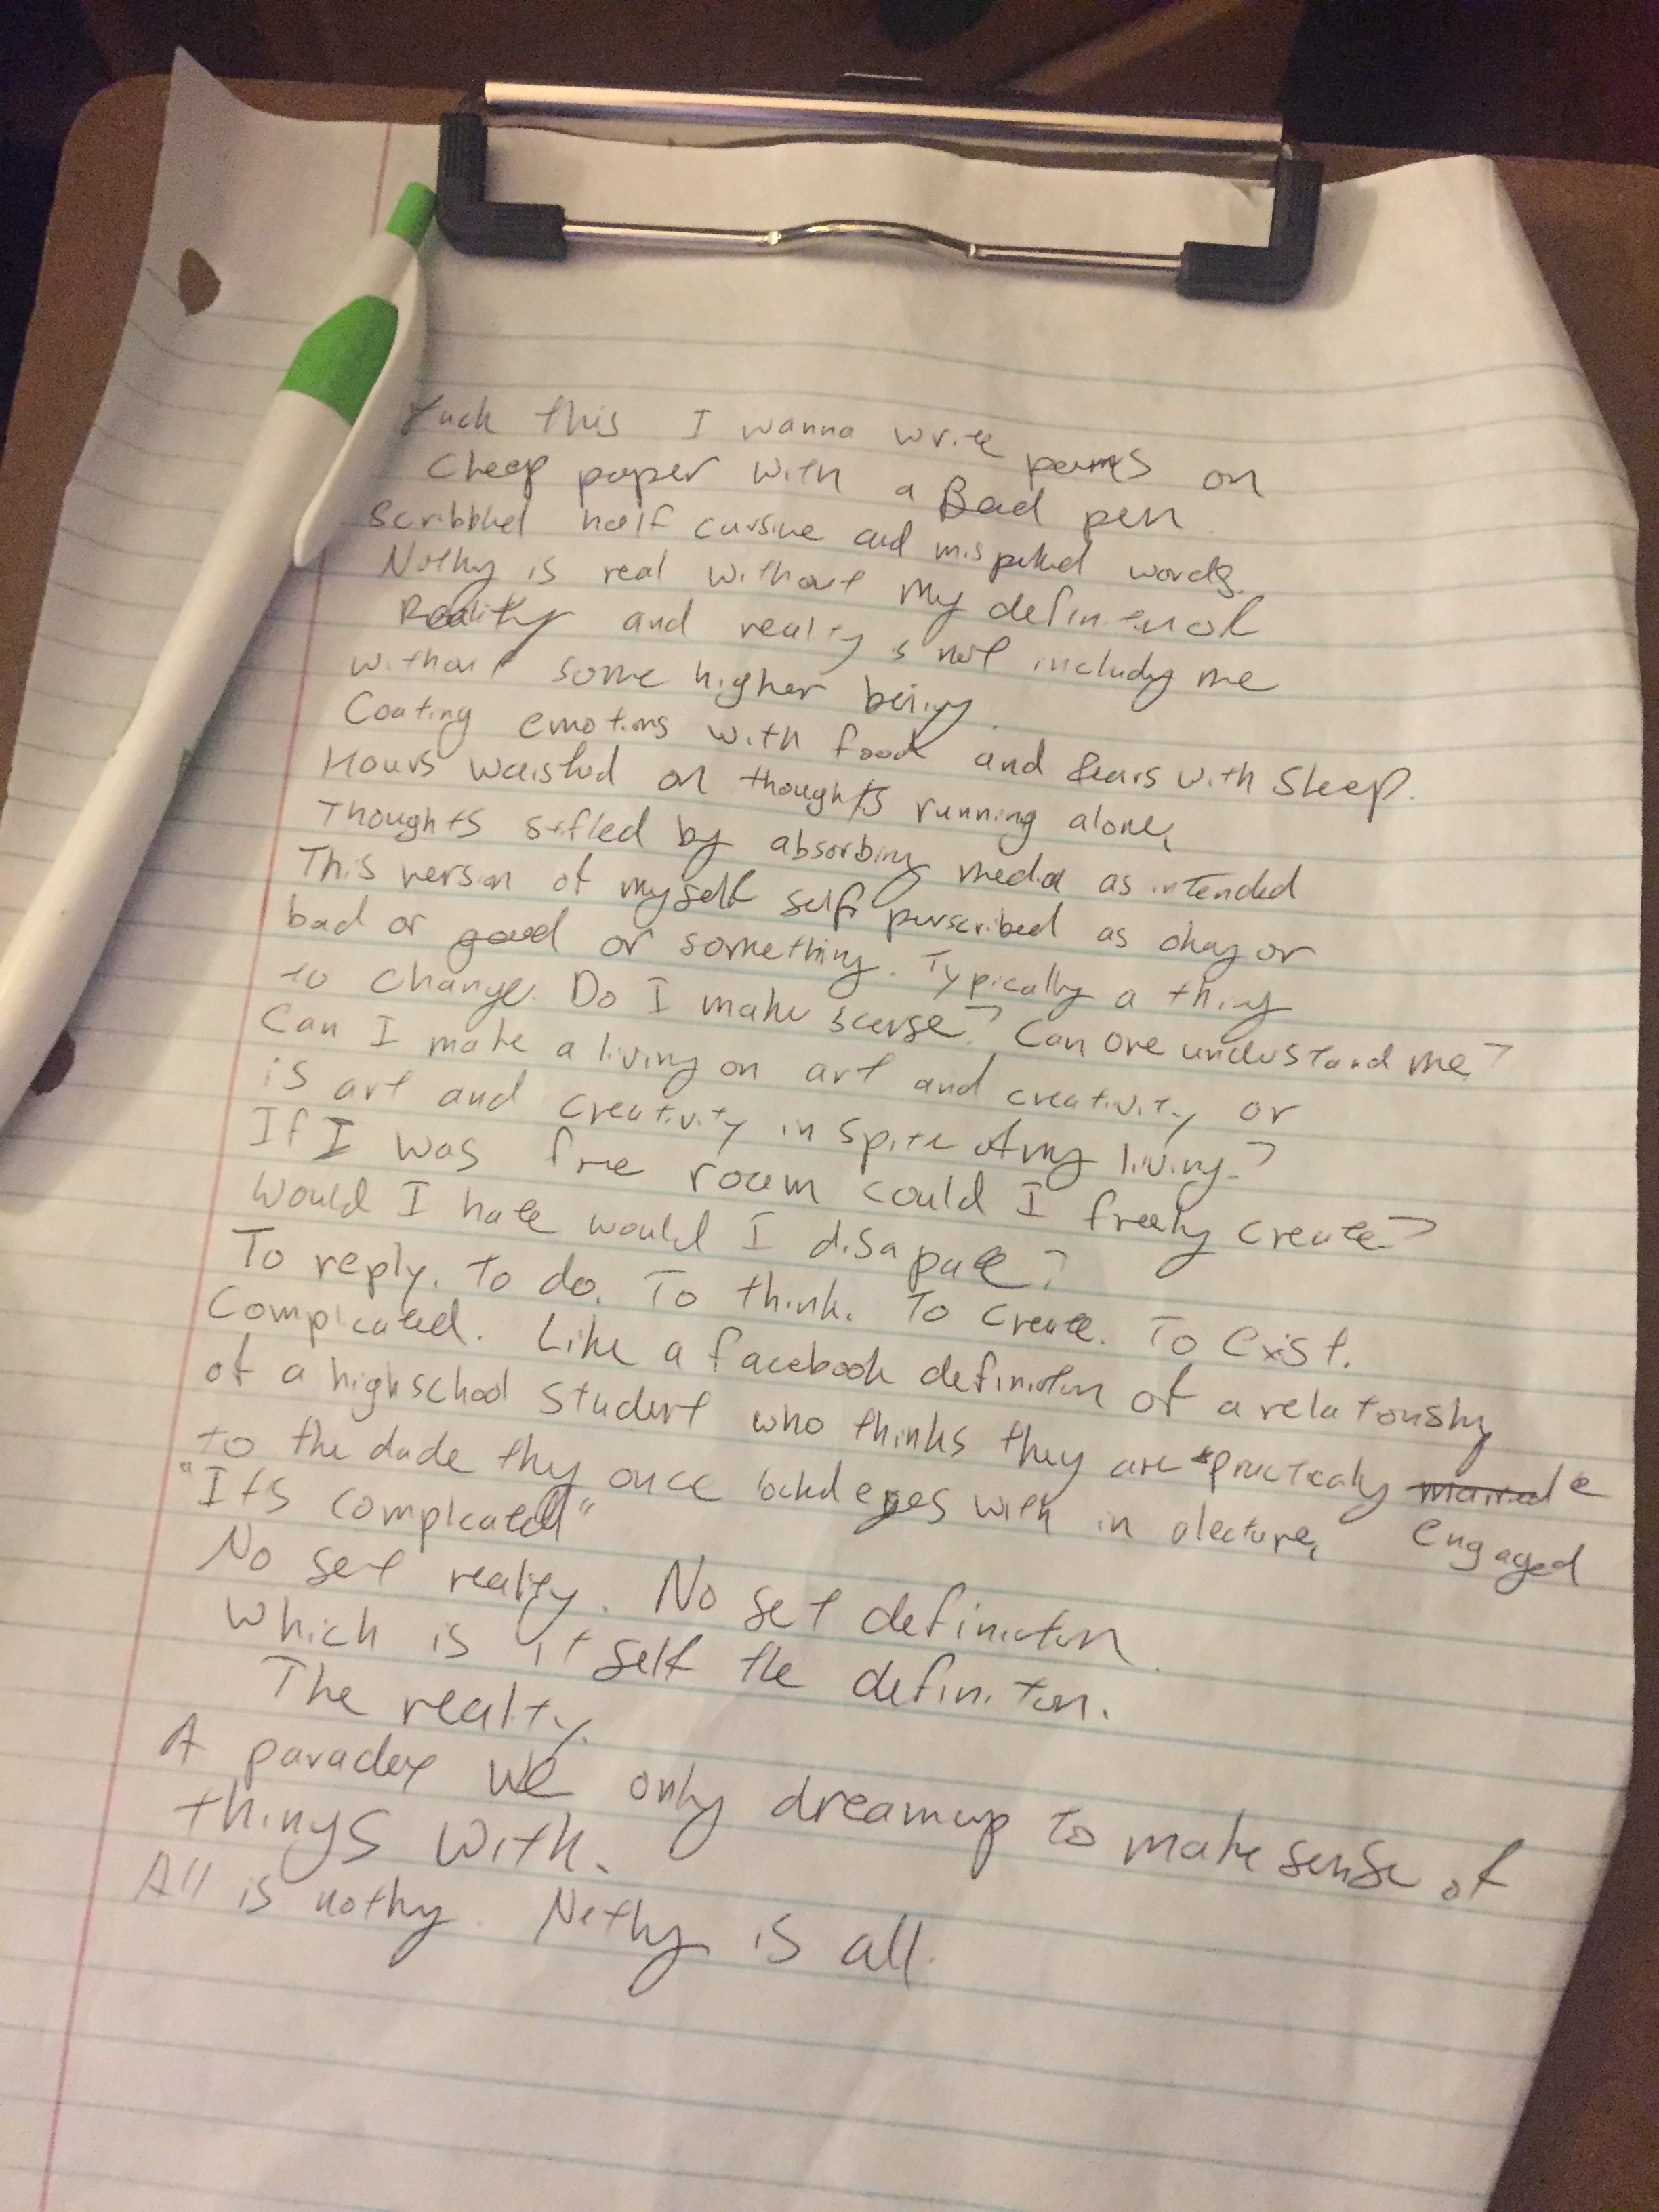 Fuck this I wanna write poems on
Cheap paper with a Bad pen
Scribbled half cursive and mispelled words.
Nothy is real without my definiton of
Reality and reality is not includy me
without some higher being.
Coating emotions with food and fears with Sleep.
Hours waisted on thoughts running alone,
Thoughts stifled by absorbing media as intended
This version of myself self perscribed as okay or
bad or good or something. Typically a thing
to change. Do I make scense? Can one understand me?
Can I make a living on art and creativity or
is art and creativity in spite of my living?
If I was free roam could I freely create?
Would I hate would I disapate?
To reply. To do. To think. To create. To Exist.
Complicated. Like a facebook definiton of a relatonshy
of a highschool student who thinks they are practicaly married
to the dude they once locked eyes with in a lecture, engaged
"Its complicated"
No set realty. No set definiton.
Which is itself the definiton.
The realty.
A paradox we only dreamup to make sense of
things with.
All is nothy. Nothy is all.